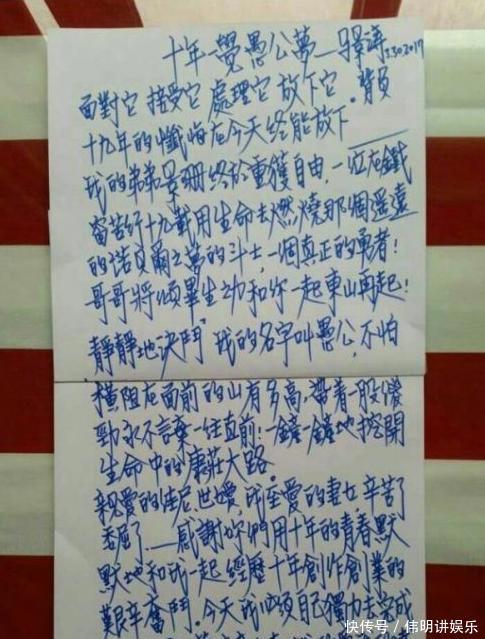 十年一覺愚公夢—景濤 3.30.2017
面對它 接受它 處理它 放下它。背負
十九年的懺悔在今天終能放下
我的弟弟景珊終於重獲自由,一位在鐵
窗苦行十九載用生命去燃燒那個遥遠
的諾貝爾之夢的斗士,一個真正的勇者!
哥哥將傾畢生功和你一起東山再起!
靜靜地決鬥"我的名字叫愚公,不怕
橫阻在面前的山有多高,帶着一股傻
勁永不言棄一往直前!一鏟一鏟地挖開
生命中的康莊大路。
親愛的佳尼,世嬡,我至愛的妻女,辛苦了
委屈了——感謝妳們用十年的青春默
默地和我一起經歷十年創作創業的
艱辛奮鬥。今天我必須自己獨力去完成
快传号 / 伟明讲娱乐